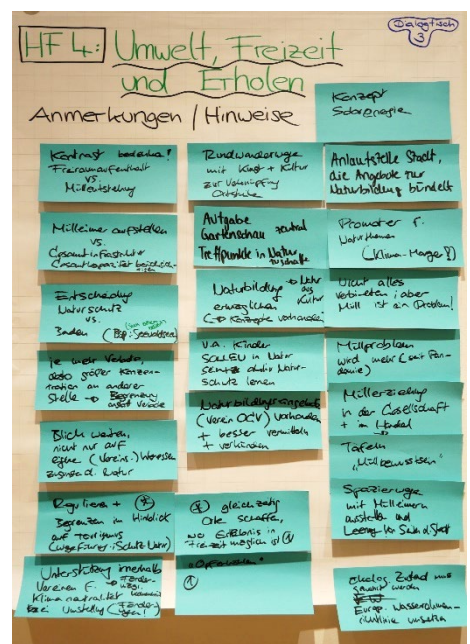 Dialogtisch
3
HF 4: Umwelt, Freizeit
und Erholen
Anmerkungen / Hinweise
Konzept
Solarenergie
Kontrast bedenken!
Freiraumaufenthalt
vs
Müllentstehung
Mülleimer aufstellen
vs.
Gesamtinfrastruktur
Entscheidung
Naturschutz
vs.
Baden
je mehr Verbote,
desto größer Konzen-
tration an anderer
Stelle → Begrenzung
anstatt Verbote
Blick weiten,
nicht nur auf
eigene (Vereins-) Interessen
Regulieren +
Begrenzen im Hinblick
auf Tourismus
Unterstützung innerhalb
Vereinen f.
Klimaneutralität
bei Umstellung
Rundwanderwege
mit Kunst + Kultur
zur Verknüpfung
Ortsteile
Aufgabe
Gartenschau zentral
Treffpunkte in Natur
zu schaffen
Naturbildung
ermöglichen
(→ Konzepte vorhanden)
v.a. Kinder
SOLLEN in Natur
Schutz lernen
(Verein OGV) vorhanden
+ besser vermitteln
+ verkünden
gleichzeitig
Orte schaffen,
wo Erlebnis in
Freizeit möglich ist
Anlaufstelle Stadt,
die Angebote zur
Naturbildung bündelt
Promoter f.
Naturthemen
Nicht alles
verbieten, aber
Müll ist ein Problem!
Müllproblem
wird mehr (seit Pan-
demie)
Müllerziehung
in der Gesellschaft
+ im Handel
Tafeln
Spazierwege
mit Mülleimern
ausstatten und
Leerung
ökolog. Zustand muss
werden
Europ. Wasserrahmen-
richtlinie umsetzen